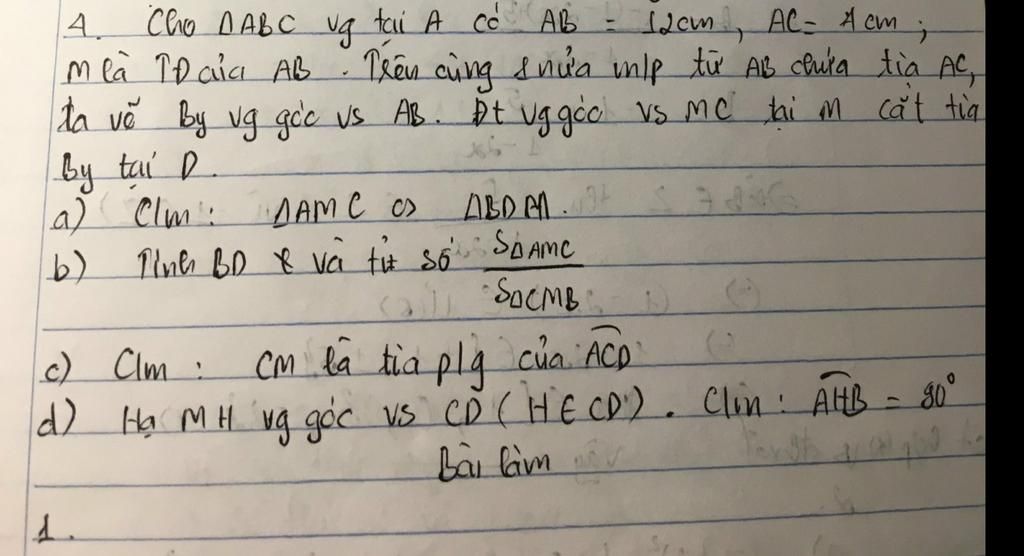 4. Cho ΔABC vg tại A có AB = 12cm, AC = 4cm;
M là TĐ của AB. Trên cùng 1 nửa m/p từ AB chứa tia AC,
ta vẽ By vg góc vs AB. Đt vg góc vs MC tại M cắt tia
By tại D.
a) C/m: ΔAMC ∽ ΔBDM.
b) Tính BD và tỉ số SΔAMC / SΔCMB
c) C/m: CM là tia p/g của ACD
d) Hạ MH vg góc vs CD (H ∈ CD). C/m: AHB = 90°
Bài làm
1.